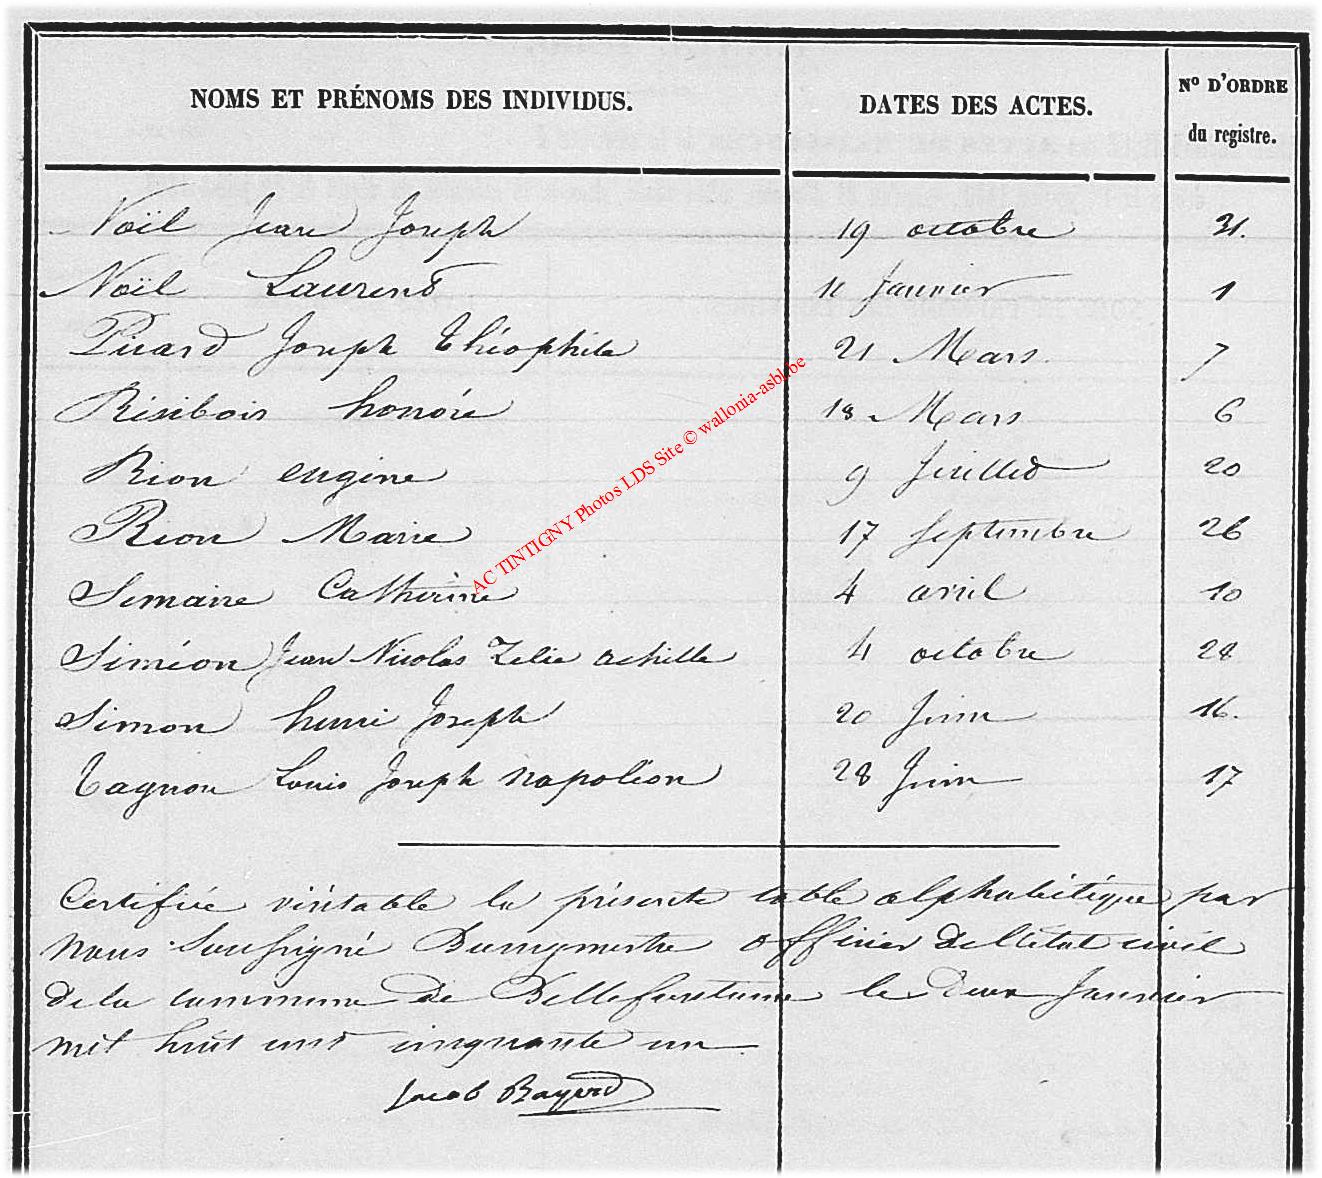 NOMS ET PRÉNOMS DES INDIVIDUS. DATES DES ACTES. Nº D'ORDRE
du registre.
Noël Jean Joseph 19 octobre 31.
Noël Laurent Janvier 1
Picard Joseph théophile 21 Mars 7
Résibois honoré 18 Mars 6
Rion eugène 9 Juillet 20
Rion Marie 17 Septembre 26
Semaire Catherine 4 avril 10
Siméon Jean Nicolas Zélie achille 4 octobre 28
Simon henri Joseph 20 Juin 16.
Tagnon Louis Joseph napoléon 28 Juin 17
Certifiée véritable la présente table alphabétique par
nous Soussigné Bourgmestre officier de l'état civil
de la commune de Bellefontaine le deux Janvier
mil huit cent cinquante un
Jacob Bayard
AC TINTIGNY Photos LDS Site © wallonia-asbl.be